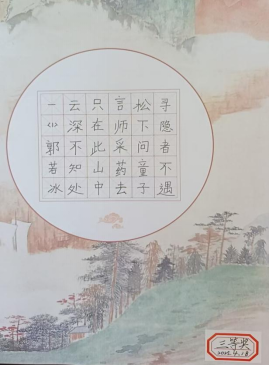 寻隐者不遇
松下问童子
言师采药去
只在此山中
云深不知处
一
郭若冰
三等奖